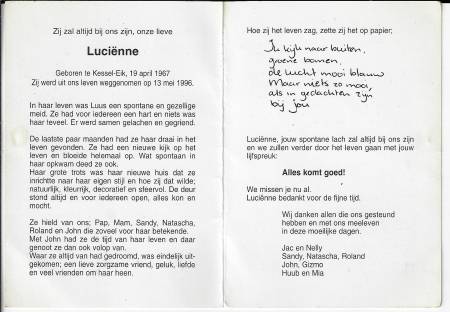 Zij zal altijd bij ons zijn, onze lieve
Luciënne
Geboren te Kessel-Eik, 19 april 1967
Zij werd uit ons leven weggenomen op 13 mei 1996.
In haar leven was Luus een spontane en gezellige
meid. Ze had voor iedereen een hart en niets was
haar teveel. Er werd samen gelachen en gegriend.
De laatste paar maanden had ze haar draai in het
leven gevonden. Ze had een nieuwe kijk op het
leven en bloeide helemaal op. Wat spontaan in
haar opkwam deed ze ook.
Haar grote trots was haar nieuwe huis dat ze
inrichtte naar haar eigen stijl en hoe zij dat wilde;
natuurlijk, kleurrijk, decoratief en sfeervol. De deur
stond altijd en voor iedereen open, alles kon en
mocht.
Ze hield van ons; Pap, Mam, Sandy, Natascha,
Roland en John die zoveel voor haar betekende.
Met John had ze de tijd van haar leven en daar
genoot ze dan ook volop van.
Waar ze altijd van had gedroomd, was eindelijk uit-
gekomen; een lieve zorgzame vriend, geluk, liefde
en veel vrienden om haar heen.
Hoe zij het leven zag, zette zij het op papier;
Ik kijk naar buiten,
groene bomen,
de lucht mooi blauw
Maar niets zo mooi,
als in gedachten zijn
bij jou
Luciënne, jouw spontane lach zal altijd bij ons zijn
en we zullen verder door het leven gaan met jouw
lijfspreuk:
Alles komt goed!
We missen je nu al.
Luciënne bedankt voor de fijne tijd.
Wij danken allen die ons gesteund
hebben en met ons meeleven
in deze moeilijke dagen.
Jac en Nelly
Sandy, Natascha, Roland
John, Gizmo
Huub en Mia